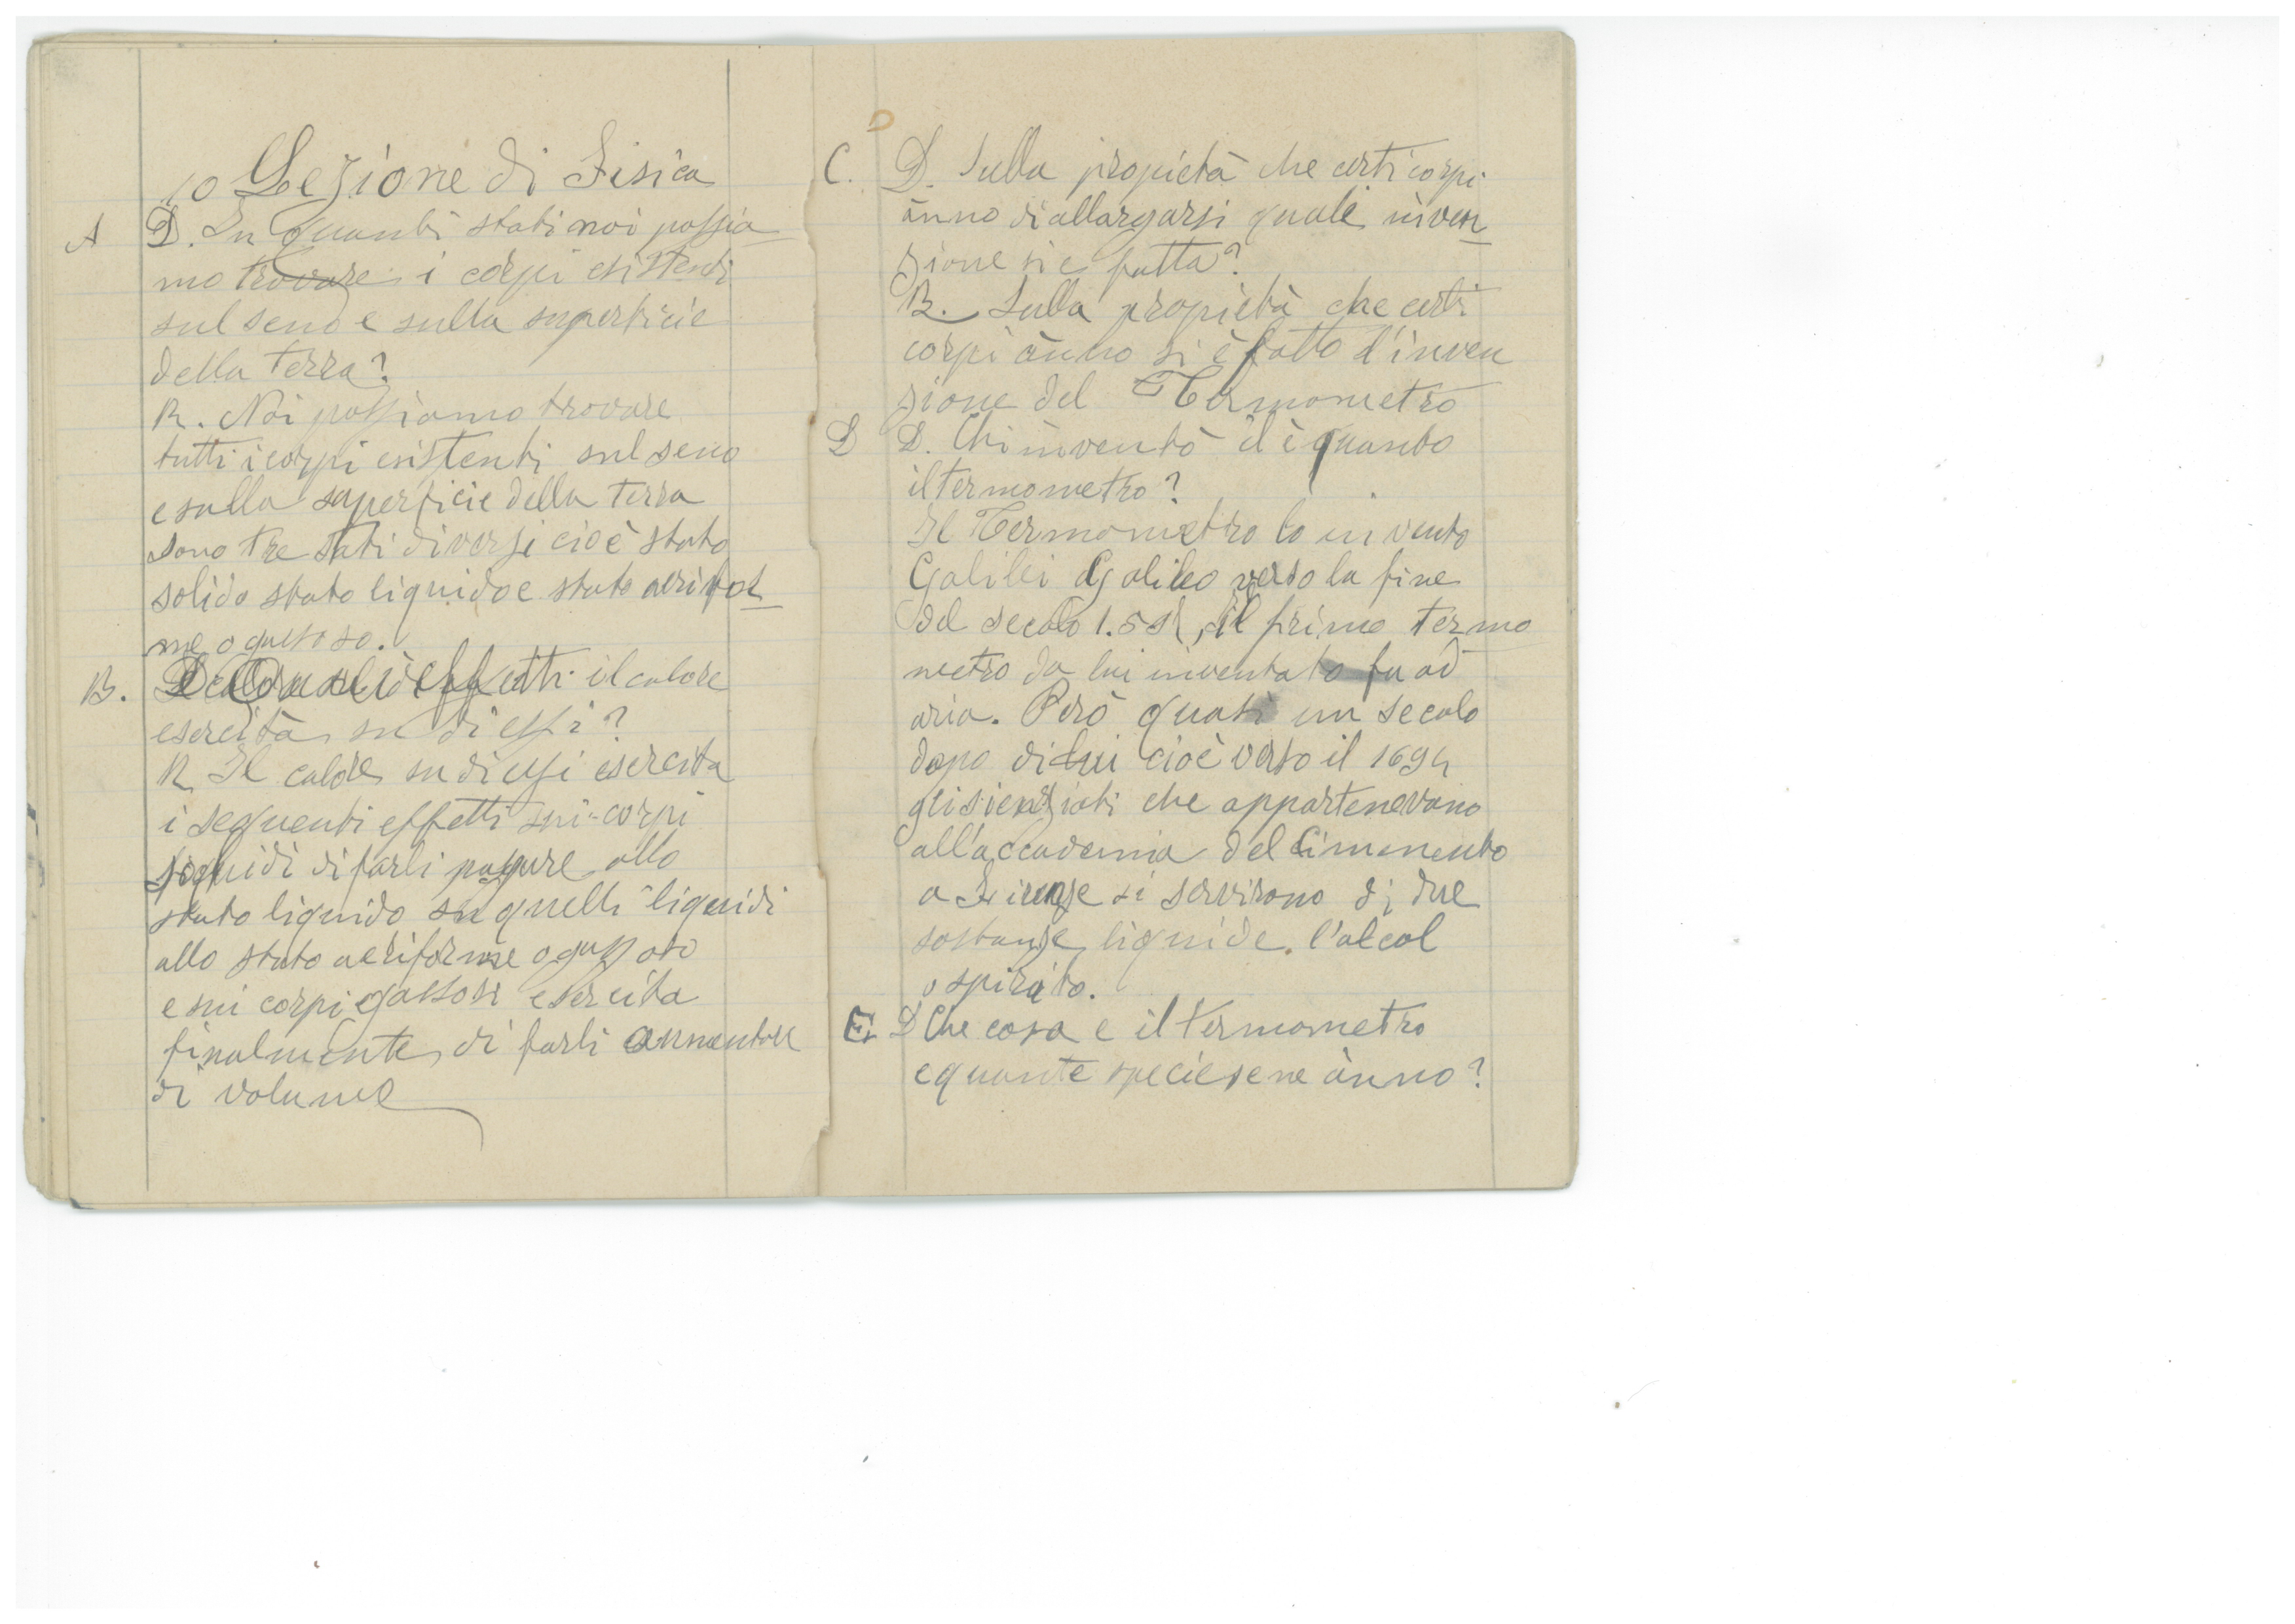 10 Lezione di Fisica
A D. In quanti stati noi possia
mo trovare i corpi esistenti
sul seno e sulla superficie
della terra?
R. Noi possiamo trovare
tutti i corpi esistenti sul seno
e sulla superficie della terra
sono tre stati diversi cioè stato
solido stato liquido e stato aerifor
me o gassoso.
B. D Quali effetti il calore
esercita su di essi?
R Il calore su di essi esercita
i seguenti effetti sui corpi
di farli passare allo
stato liquido su quelli liquidi
allo stato aeriforme o gassoso
e sui corpi gassosi esercita
finalmente di farli aumentare
di volume
C. D. Sulla propietà che certi corpi
ànno di allargarsi quale inven
zione si e fatta?
R. Sulla propietà che certi
corpi ànno si è fatto l'inven
zione del Termometro
D D. Chi inventò il è quando
il termometro?
Il Termometro lo invento
Galilei Galileo verso la fine
del secolo il primo termo
metro da lui inventato fu ad
aria. Però quasi un secolo
dopo di lui cioè verso il 1694
gli sienziati che appartenevano
all'accademia del Cimento
a Firenze si servirono di due
sostanze liquide. l'alcol
o spirito.
E. D Che cosa e il termometro
e quante specie se ne ànno?